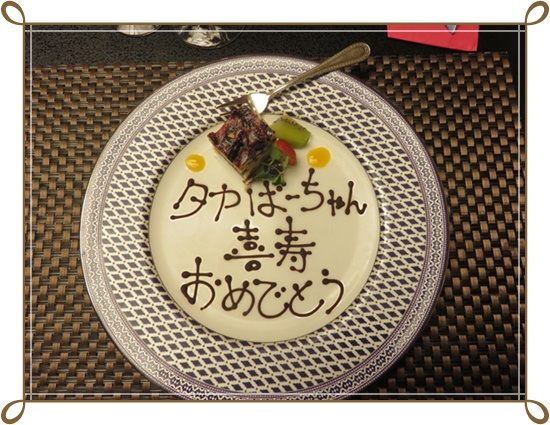 タカばーちゃん
喜寿
おめでとう